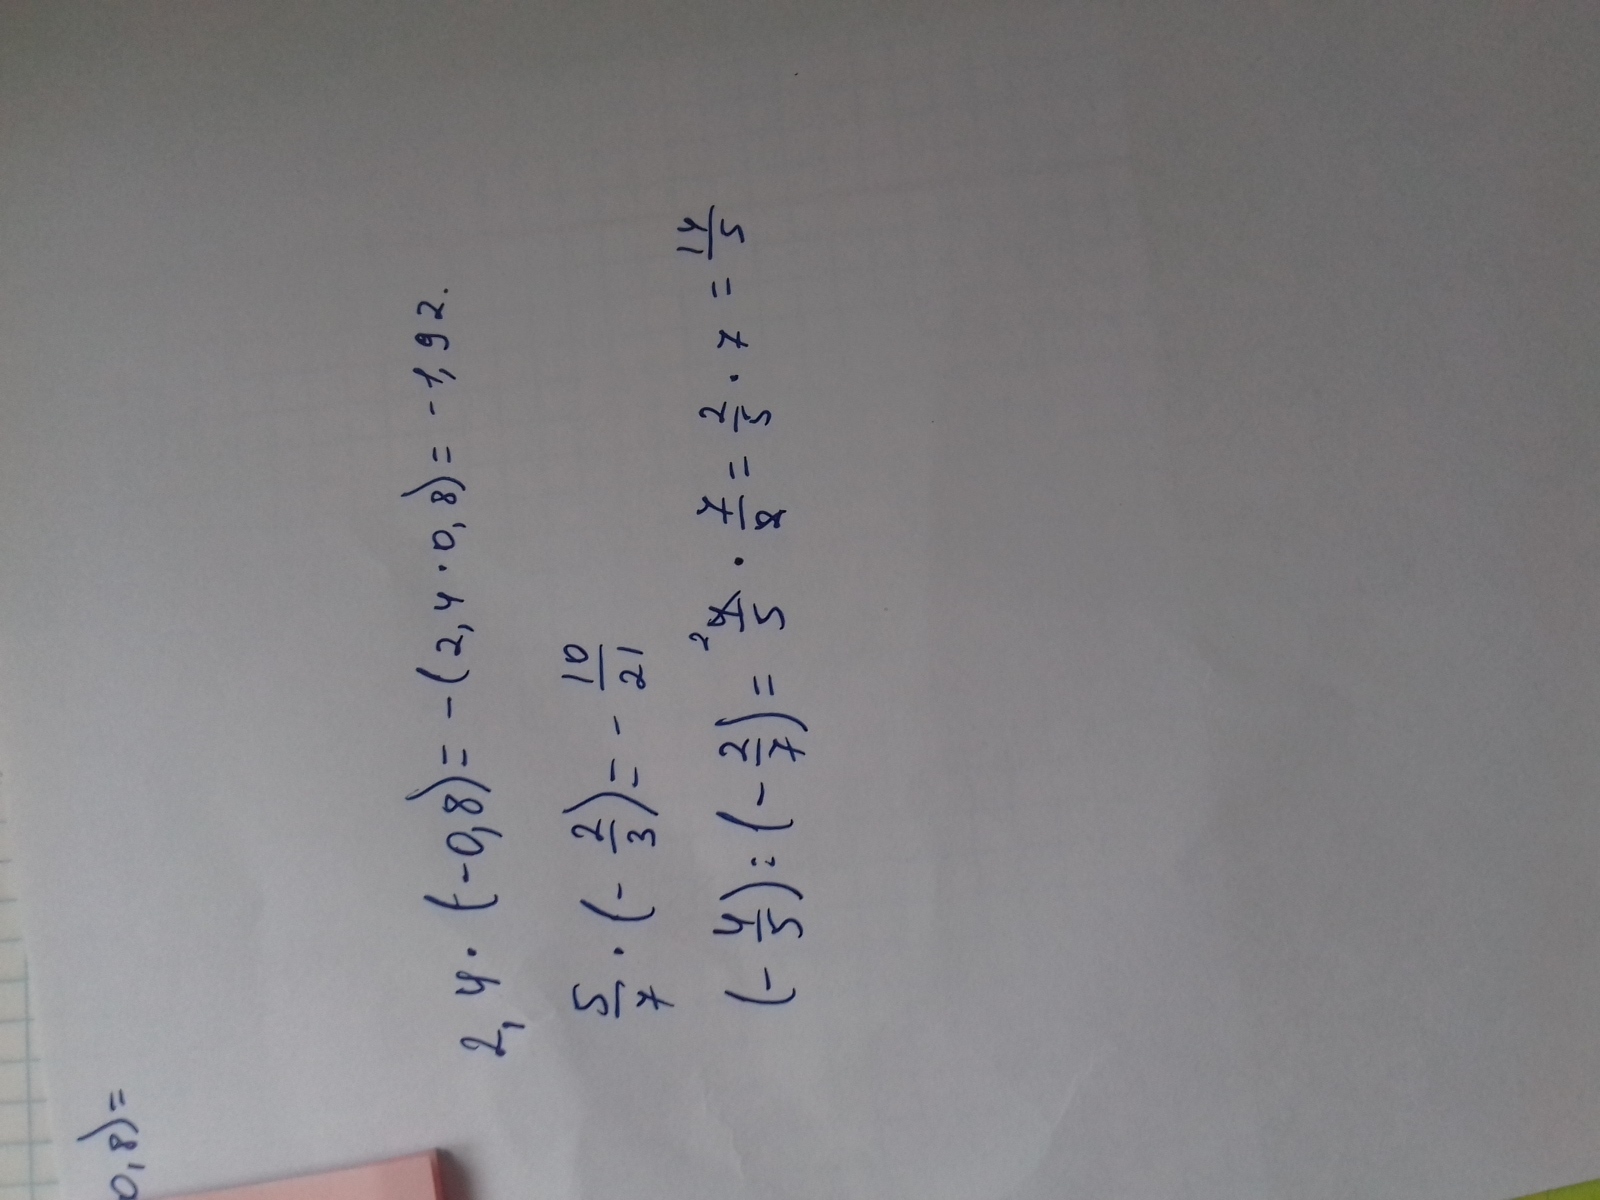 0,8)=
2,4 · (-0,8) = -(2,4 · 0,8) = -1,92.
5/7 · (-2/3) = -10/21
(-4/5) : (-2/7) = ²4/5 · 7/2 = 2/5 · 7 = 14/5